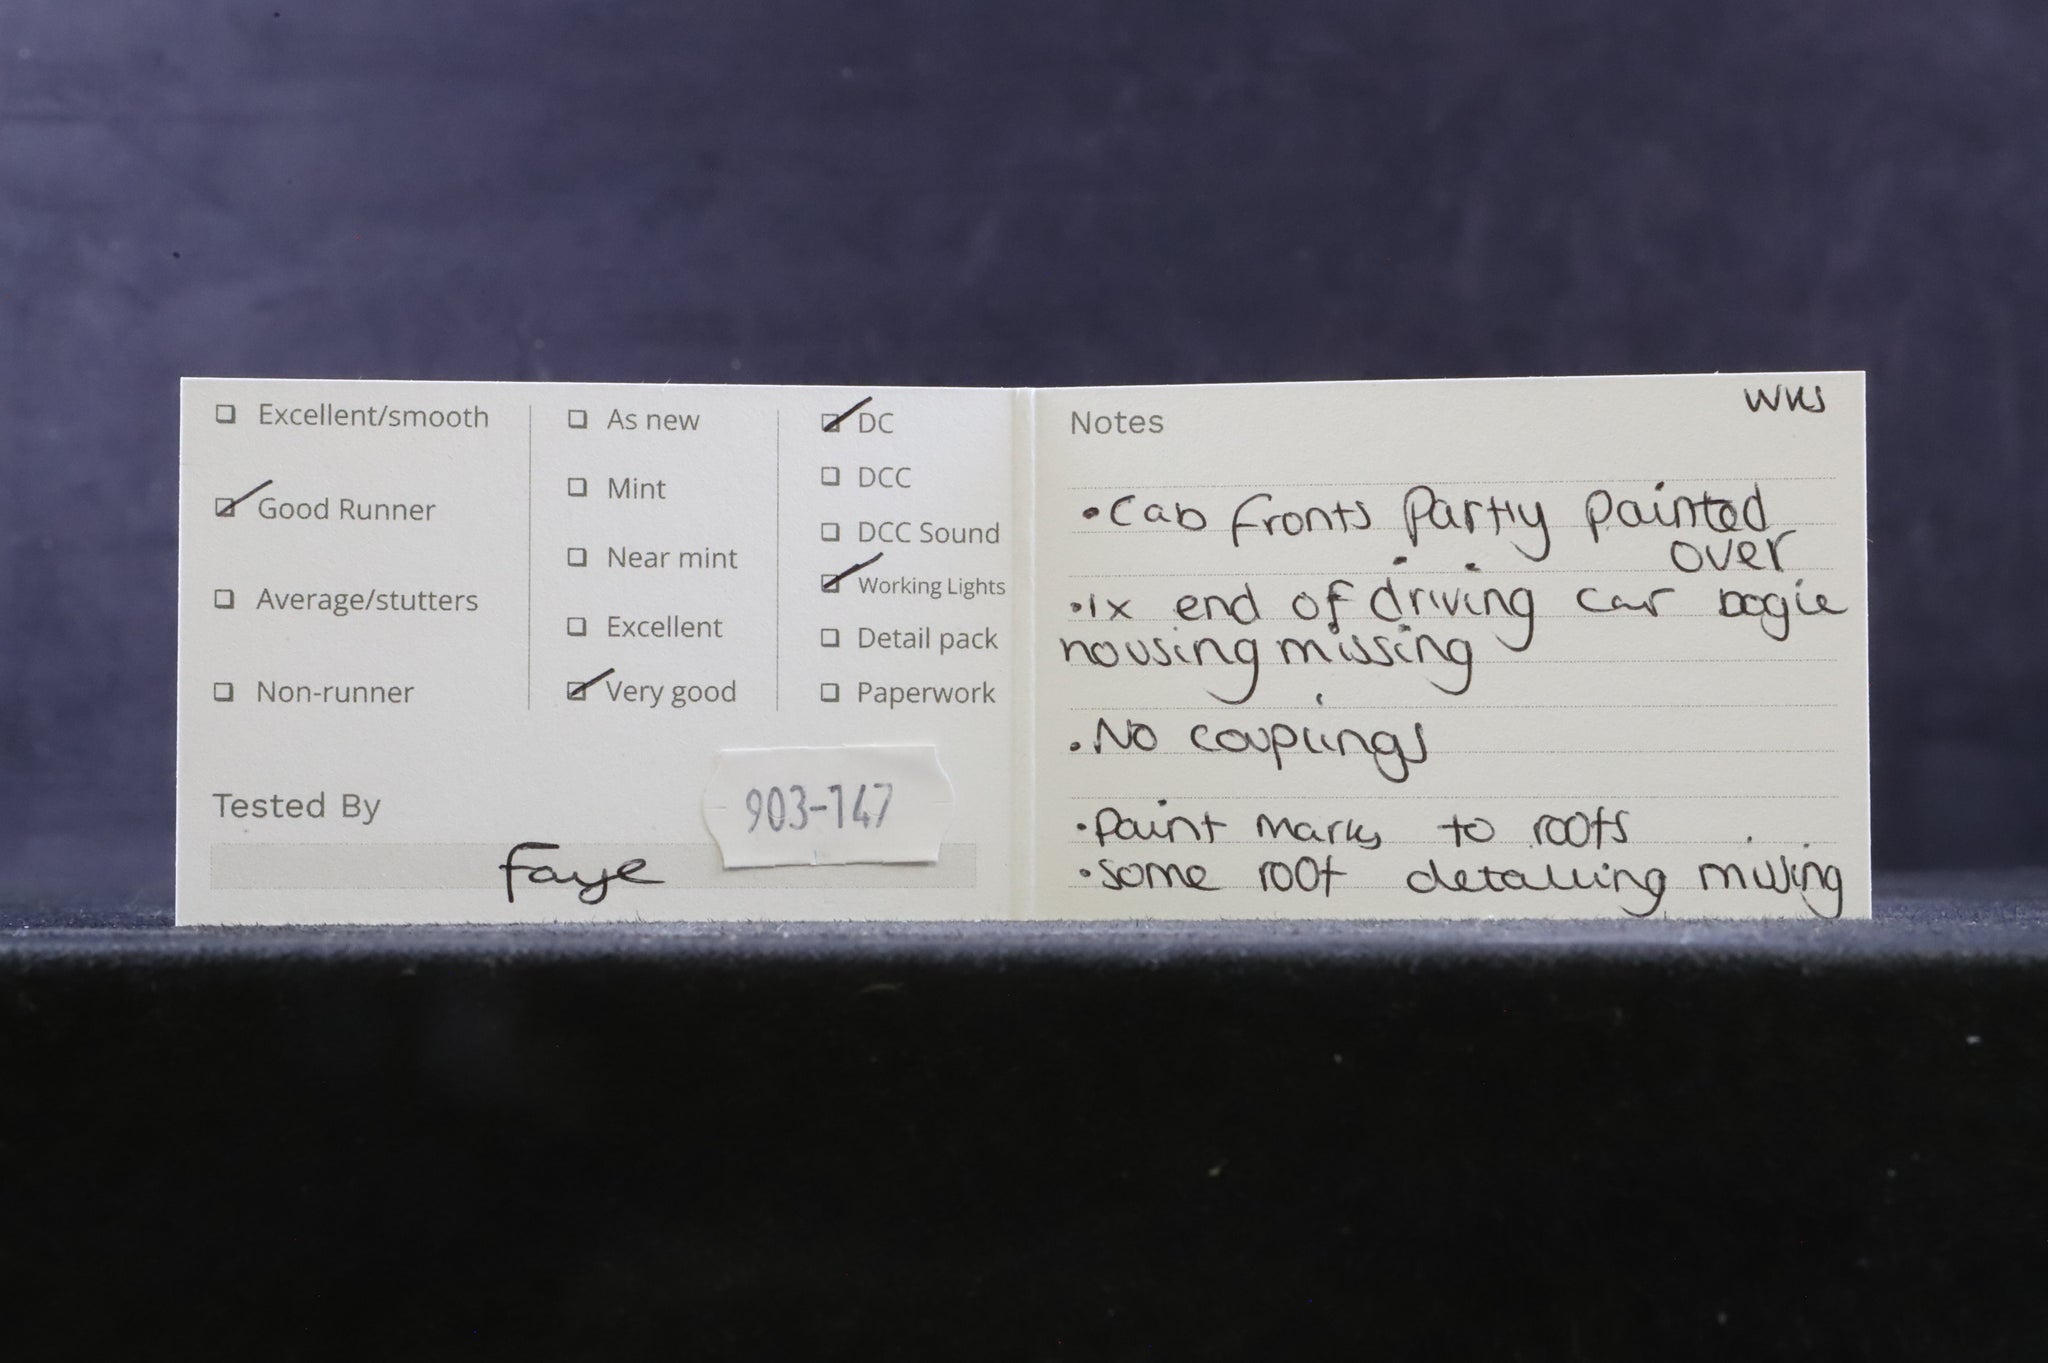 Excellent/smooth
Good Runner
Average/stutters
Non-runner
As new
Mint
Near mint
Excellent
Very good
DC
DCC
DCC Sound
Working Lights
Detail pack
Paperwork
Tested By
Faye
903-147
Notes
WKS
•Cab fronts partly painted
over
•1x end of driving car bogie
housing missing
•No couplings
•Paint marks to roofs
•some roof detailing missing